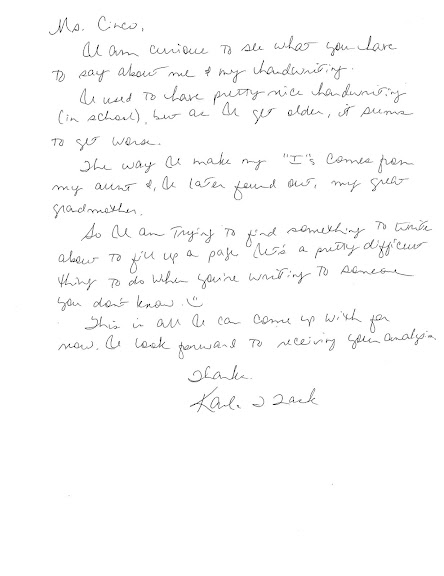 Ms. Cinco,
I am curious to see what you have
to say about me & my handwriting.
I used to have pretty nice handwriting
(in school), but as I get older, it seems
to get worse.
The way I make my "I"s comes from
my aunt &, I later found out, my great
gradmother.
So I am trying to find something to write
about to fill up a page. It's a pretty difficult
thing to do when you're writing to someone
you don't know. ☺
This is all I can come up with for
now. I look forward to receiving your analysis.
Thanks.